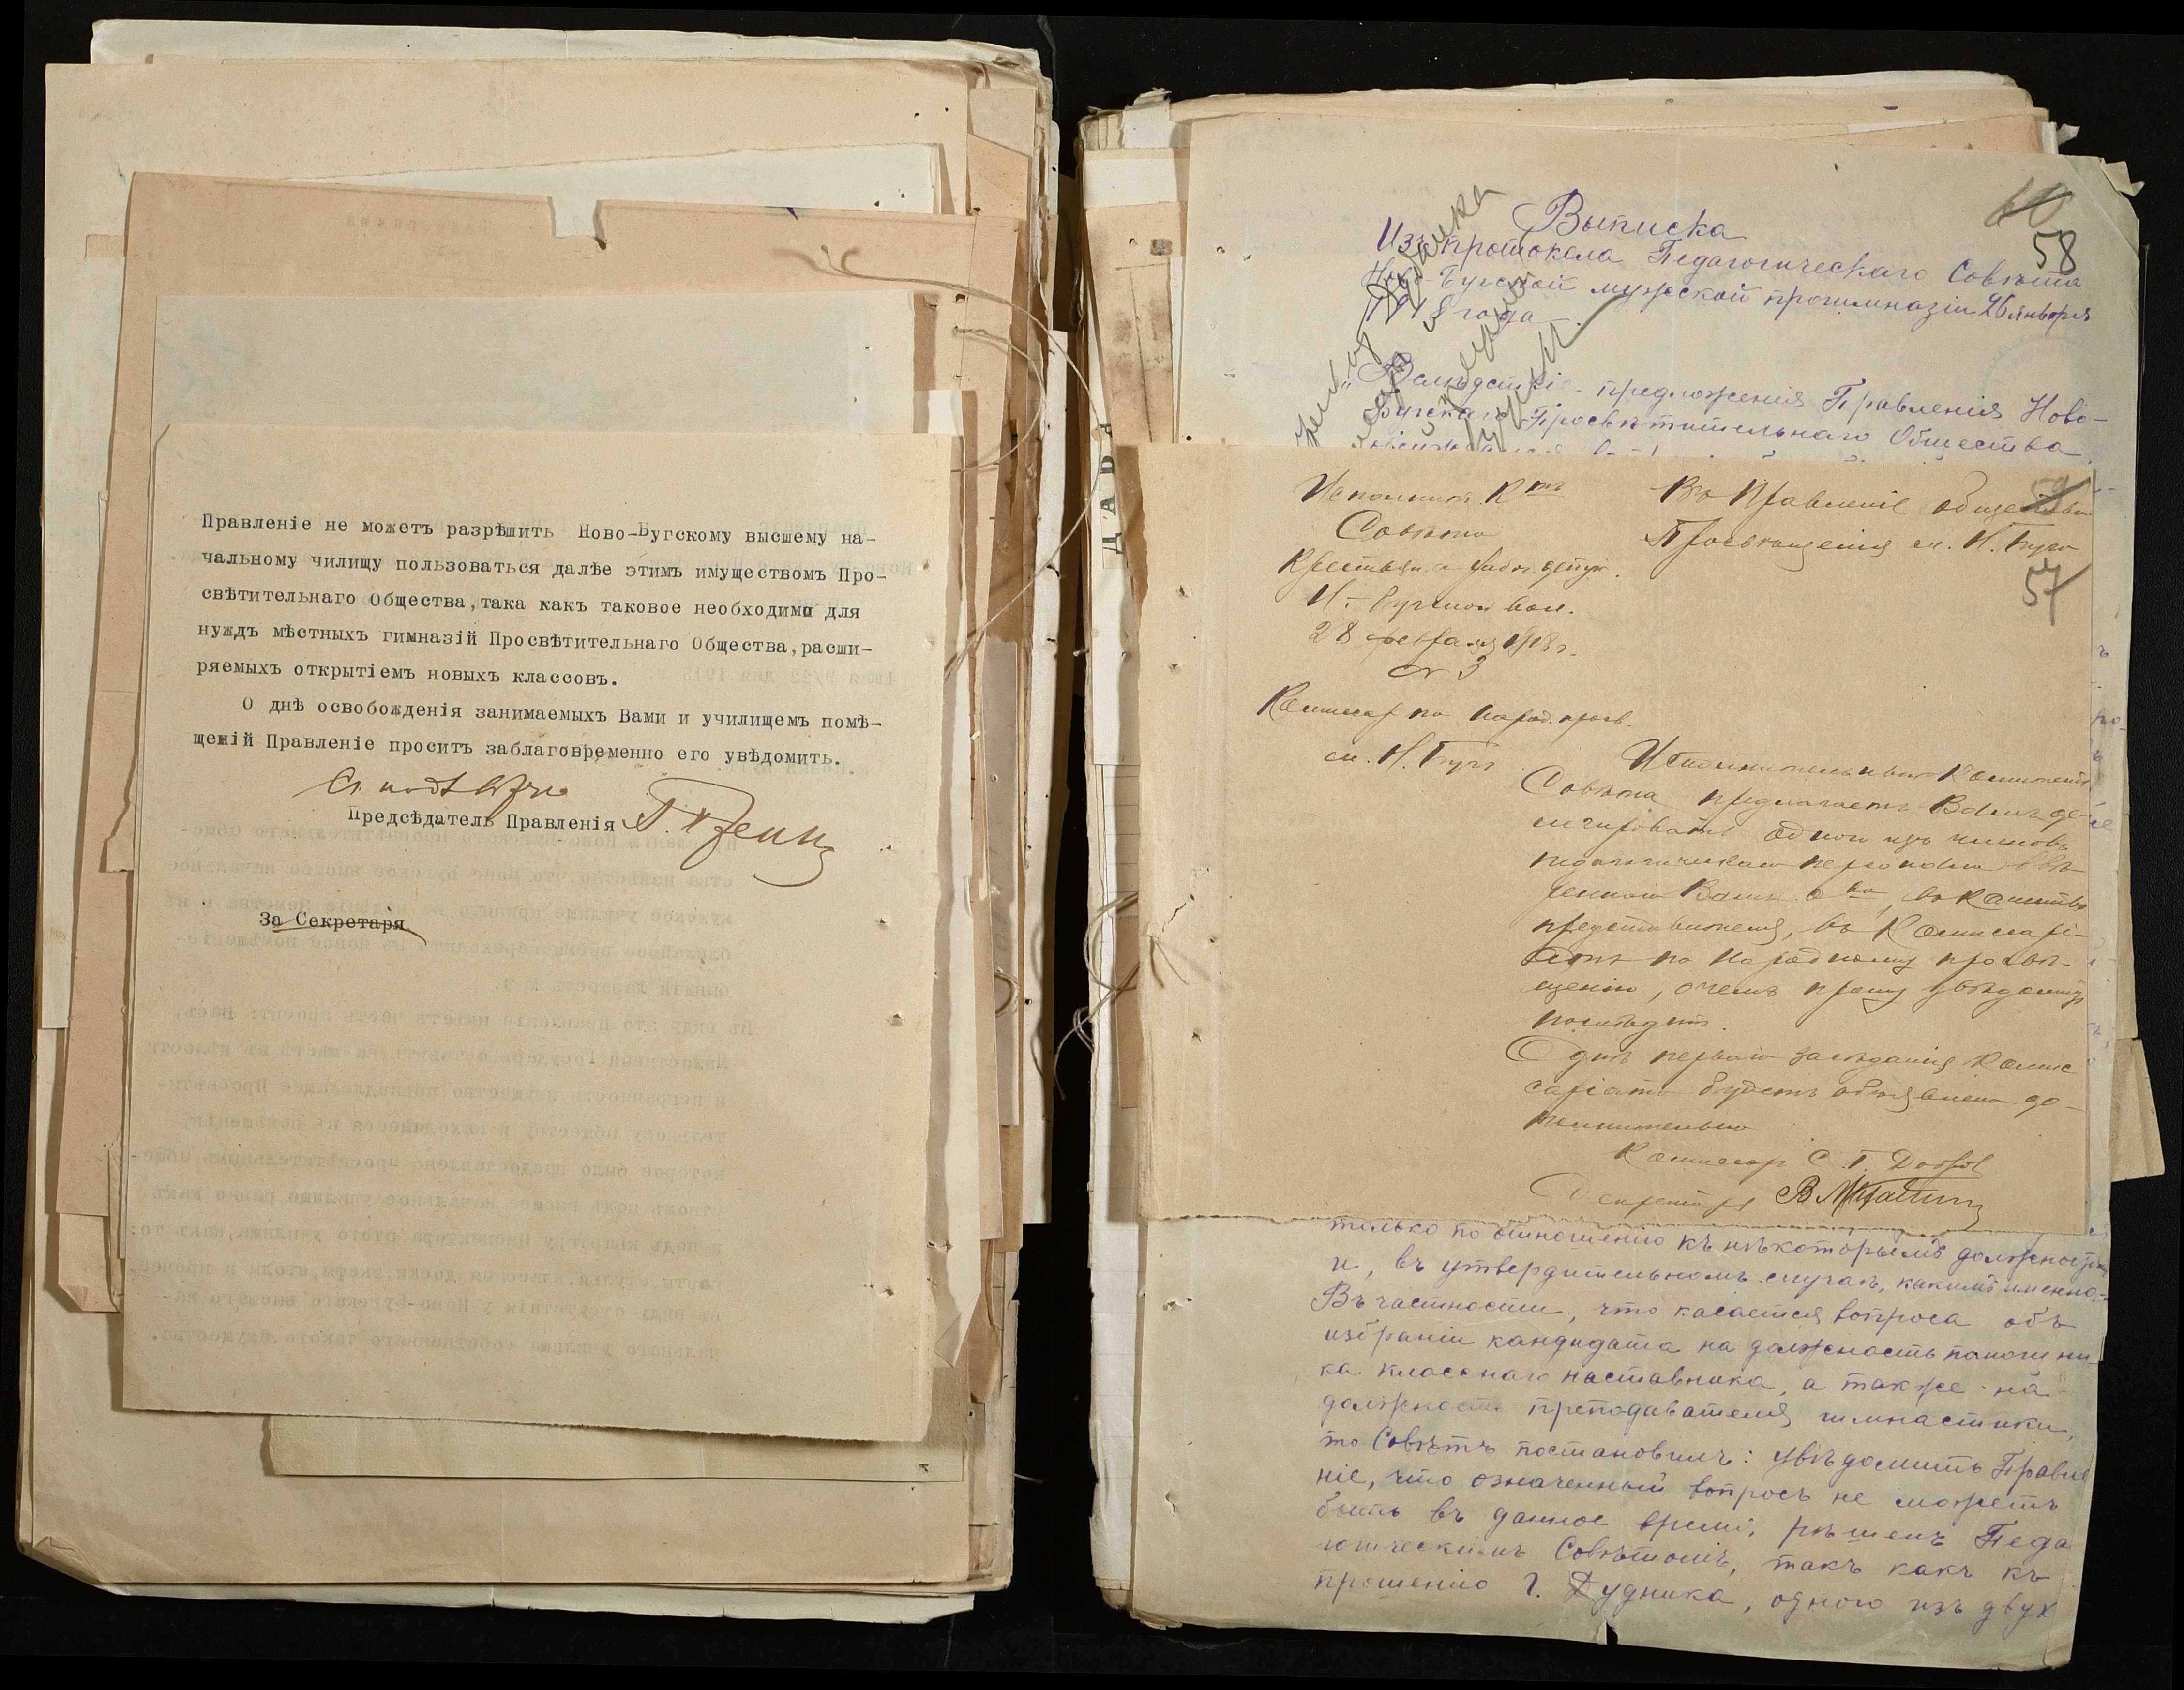 Правленіе не можетъ разрѣшить Ново-Бугскому высшему на-
чальному чилищу пользоваться далѣе этимъ имуществомъ Про-
свѣтительнаго Общества,така какъ таковое необходимо для
нуждъ мѣстныхъ гимназій Просвѣтительнаго Общества,расши-
ряемыхъ открытіемъ новыхъ классовъ.
О днѣ освобожденія занимаемыхъ Вами и училищемъ помѣ-
щеній Правленіе проситъ заблаговременно его увѣдомить.
Предсѣдатель Правленія
За Секретаря
60
58
Выписка
Изъ протокола Педагогическаго Совѣта
Ново-Бугской мужской прогимназіи 26 января
1918 года.
"Вслѣдствіе предложенія Правленія Ново-
Бугскаго Просвѣтительнаго Общества
59
57
Исполнит. К-тъ
Совѣта
Крестьян. и рабоч. депут.
Н.-Бугской вол.
28 февраля 1918 г.
№ 3
Комиссар по народ. просв.
м. Н. Бугъ
Въ Правленіе общества
Просвѣщенія м. Н. Буга
Исполнительный Комитетъ
Совѣта предлагаетъ Вамъ де-
легировать одного изъ членовъ
педагогическаго персонала ввѣ-
реннаго Вамъ о-ва, въ качествѣ
представителя, въ Комиссарі-
атъ по Народному просвѣ-
щенію, о чемъ прошу увѣдомить
О днѣ перваго засѣданія Комис
саріата будетъ объявлено до-
полнительно
Комиссар С. Г.
Секретарь
только по отношенію къ нѣкоторымъ должностямъ
и, въ утвердительномъ случаѣ, какимъ именно.-
Въ частности, что касается вопроса объ
избраніи кандидата на должность помощни
ка класснаго наставника, а также на
должность преподавателя гимнастики,
то Совѣтъ постановилъ: увѣдомить Правле
ніе, что означенный вопросъ не можетъ
быть въ данное время, рѣшенъ Педа
гогическимъ Совѣтомъ, такъ какъ къ
прошенію г. Дудника, одного изъ двух